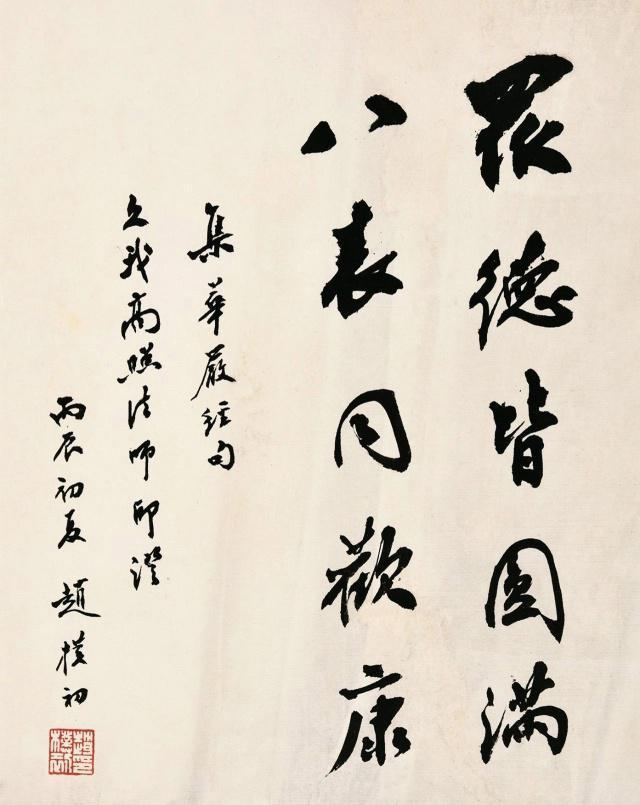 眾德皆圓滿
八表同歡康
集華嚴經句
高照法師印
丙辰初夏 趙樸初